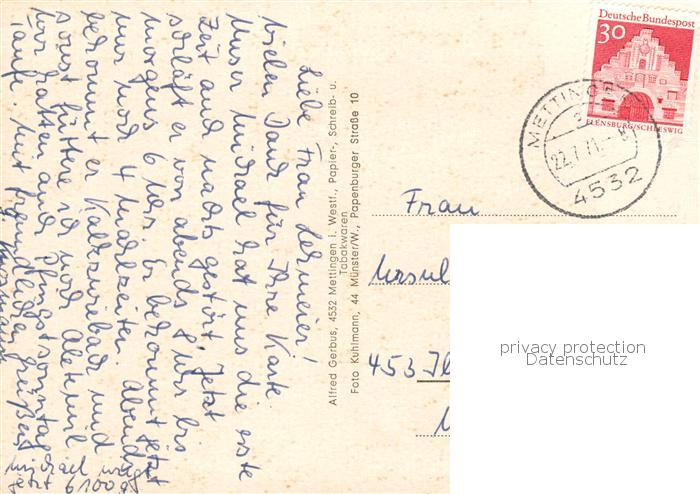 Liebe Frau Lermeier!
Vielen Dank für Ihre Karte.
Unser Michael hat uns die erste
Zeit auch nachts gestört. Jetzt
schläft er von abends 8 Uhr bis
morgens 6 Uhr. Er bekommt jetzt
nur noch 4 Mahlzeiten. Abends
bekommt er und
sonst füttere ich noch Aletemil
Wir hatten am Pfingstsonntag
Taufe. Mit freundlichen Grüßen
Michael wiegt
jetzt 6100 g
Alfred Gerbus, 4532 Mettingen i. Westf., Papier-, Schreib- u.
Tabakwaren
Foto Kuhlmann, 44 Münster/W., Papenburger Straße 10
Deutsche Bundespost
30
FLENSBURG/SCHLESWIG
METTINGEN
22.7.71
4532
Frau
Ursul
453 Ib
privacy protection
Datenschutz